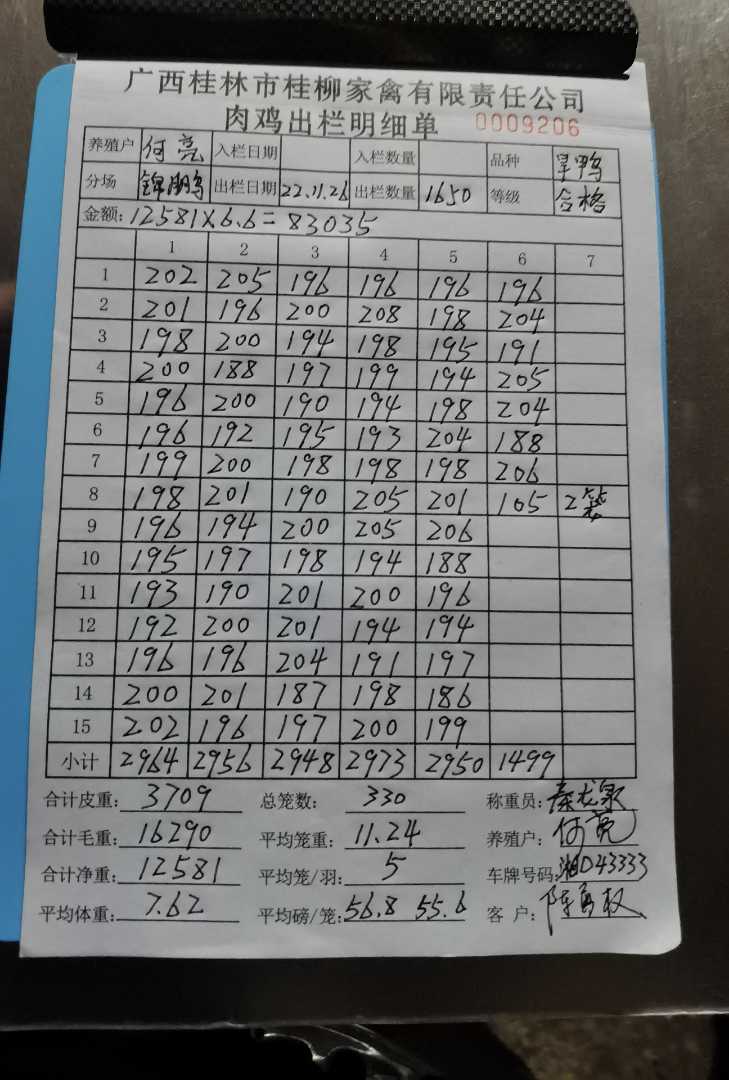 广西桂林市桂柳家禽有限责任公司
肉鸡出栏明细单 0009206
养殖户 何亮 入栏日期 入栏数量 品种 旱鸭
分场 锦鹏鸟 出栏日期 22.11.26 出栏数量 1650 等级 合格
金额: 12581×6.6=83035
1 2 3 4 5 6 7
1 202 205 196 196 196 196
2 201 196 200 208 198 204
3 198 200 194 198 195 191
4 200 188 197 199 194 205
5 196 200 190 194 198 204
6 196 192 195 193 204 188
7 199 200 198 198 198 206
8 198 201 190 205 201 105 2袋
9 196 194 200 205 206
10 195 197 198 194 188
11 193 190 201 200 196
12 192 200 201 194 194
13 196 196 204 191 197
14 200 201 187 198 186
15 202 196 197 200 199
小计 2964 2956 2948 2973 2950 1499
合计皮重: 3709 总笼数: 330 称重员: 秦龙泉
合计毛重: 16290 平均笼重: 11.24 养殖户: 何亮
合计净重: 12581 平均笼/羽: 5 车牌号码: 湘D43333
平均体重: 7.62 平均磅/笼: 56.8 55.6 客户: